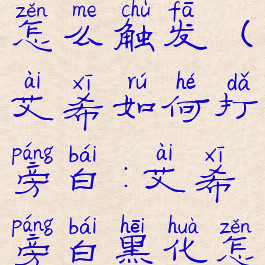 zěn me chù fā
怎么触发（
ài xī rú hé dǎ
艾希如何打
páng bái ài xī
旁白：艾希
páng bái hēi huà zěn
旁白黑化怎